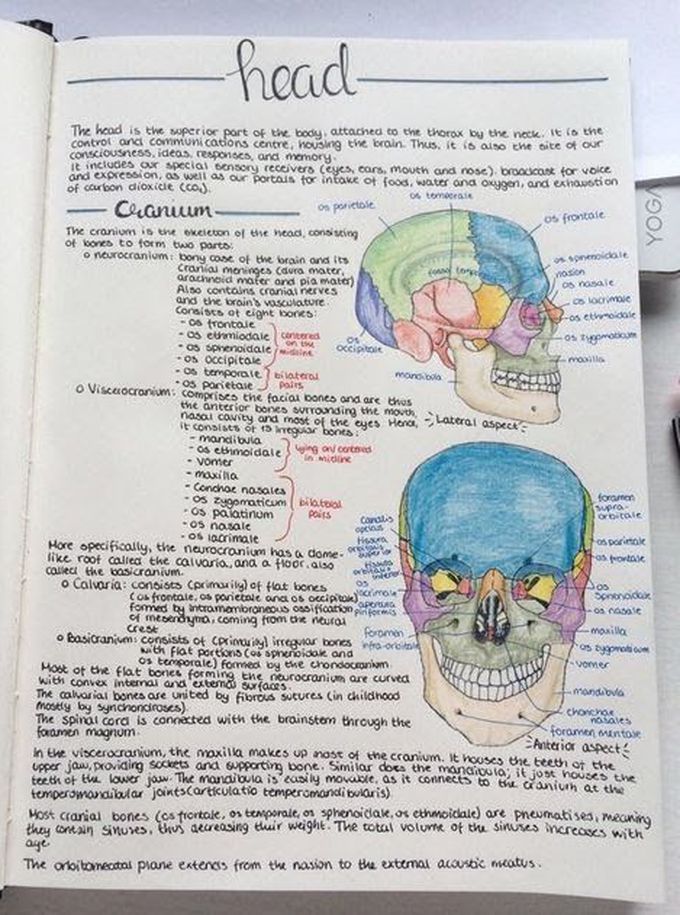 head
The head is the superior part of the body, attached to the thorax by the neck. It is the
control and communications centre, housing the brain. Thus, it is also the site of our
consciousness, ideas, responses, and memory.
It includes our special sensory receivers (eyes, ears, mouth and nose), broadcast for voice
and expression, as well as our portals for intake of food, water and oxygen, and exhaustion
of carbon dioxide (CO₂).
Cranium
The cranium is the skeleton of the head, consisting
of bones to form two parts:
o neurocranium: bony case of the brain and its
cranial meninges (dura mater,
arachnoid mater and pia mater)
Also contains cranial nerves
and the brain's vasculature.
Consists of eight bones:
- os frontale
- os ethmiodale
- os sphenoidale
- os occipitale
centered
on the
midline
- os temporale
- os parietale
bilateral
pairs
o Viscerocranium: comprises the facial bones and are thus
the anterior bones surrounding the mouth,
nasal cavity and most of the eyes. Hence,
it consists of 15 irregular bones:
- mandibula
- os ethmoidale
- vomer
lying on/centered
in midline
- maxilla
- conchae nasales
- os zygomaticum
- os palatinum
- os nasale
- os lacrimale
bilateral
pairs
More specifically, the neurocranium has a dome-
like roof called the calvaria, and a floor, also
called the basicranium.
o Calvaria: consists (primarily) of flat bones
(os frontale, os parietale and os occipitale)
formed by intramembraneous ossification
of mesenchyma, coming from the neural
crest
o Basicranium: consists of (primarily) irregular bones
with flat portions (os sphenoidale and
os temporale) formed by the chondocranium.
Most of the flat bones forming the neurocranium are curved
with convex internal and external surfaces.
The calvarial bones are united by fibrous sutures (in childhood
mostly by synchondroses).
The spinal cord is connected with the brainstem through the
foramen magnum.
In the viscerocranium, the maxilla makes up most of the cranium. It houses the teeth of the
upper jaw, providing sockets and supporting bone. Similar does the mandibula; it just houses the
teeth of the lower jaw. The mandibula is easily movable, as it connects to the cranium at the
temperomandibular joints (articulatio temperomandibularis).
Most cranial bones (os frontale, os temporale, os sphenoidale, os ethmoidale) are pneumatises, meaning
they contain sinuses, thus decreasing their weight. The total volume of the sinuses increases with
age.
The orbitomeatal plane extends from the nasion to the external acoustic meatus.
os parietale
os temporale
os frontale
os sphenoidale
nasion
os nasale
os lacrimale
os ethmoidale
os zygomaticum
maxilla
os
occipitale
mandibula
Lateral aspect
foramen
supra-
orbitale
os parietale
os frontale
os
sphenoidale
os nasale
maxilla
os zygomaticum
vomer
mandibula
chonchae
nasales
foramen mentale
Canalis
opticus
fissura
orbitalis
superior
fissura
orbitalis
inferior
os
lacrimale
apertura
piriformis
foramen
infra-orbitale
Anterior aspect
YOGA